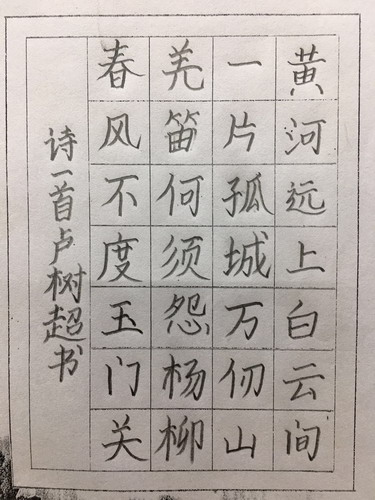 黄河远上白云间
一片孤城万仞山
羌笛何须怨杨柳
春风不度玉门关
诗一首卢树超书